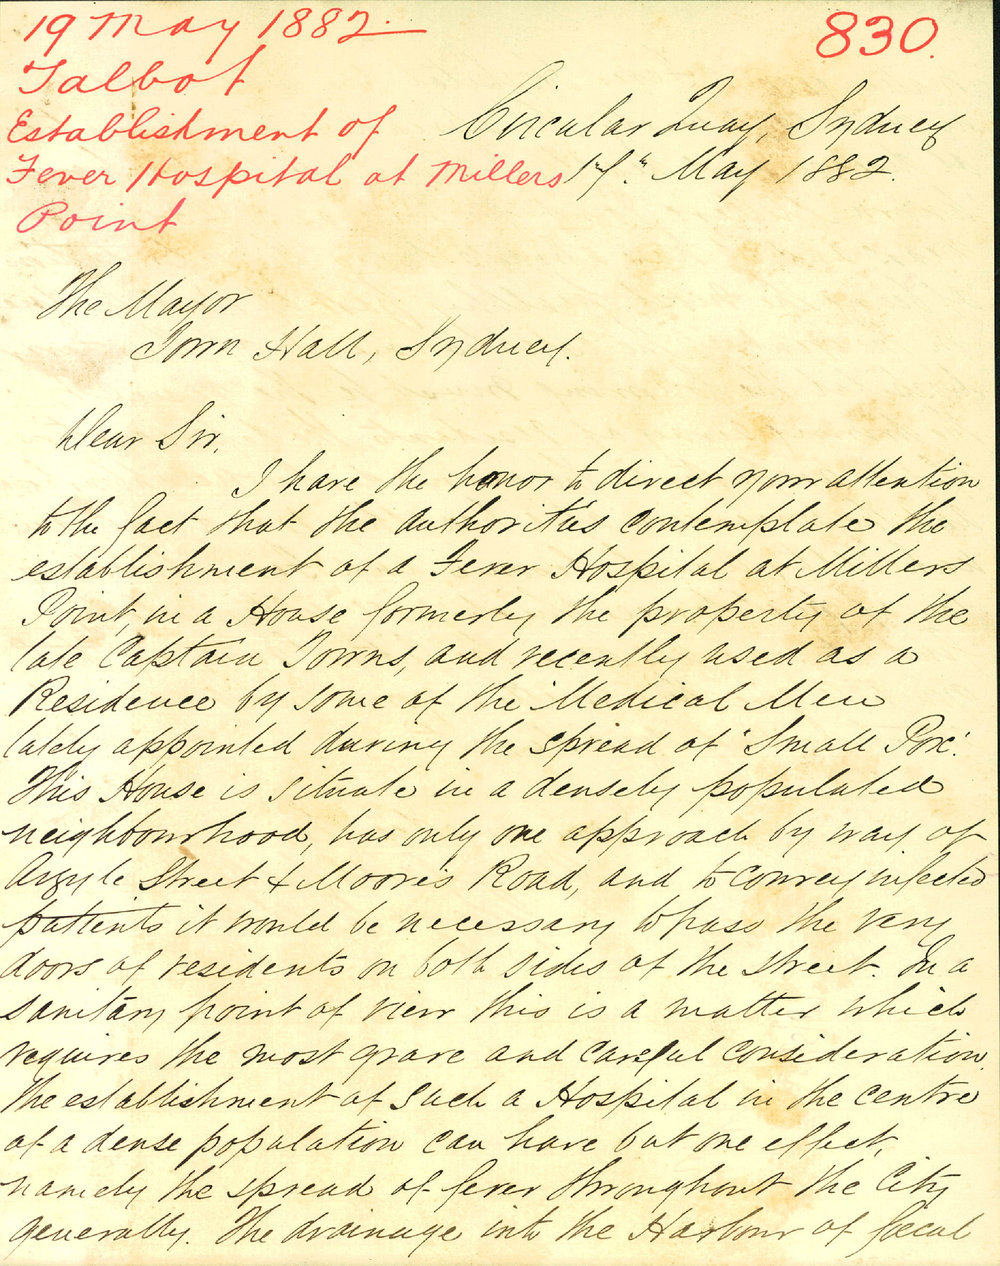 19 May 1882
Talbot
Establishment of
Fever Hospital at Millers
Point
830.
Circular Quay, Sydney
17th May 1882.
The Mayor
Town Hall, Sydney.
Dear Sir,
I have the honor to direct your attention
to the fact that the authorities contemplate the
establishment of a Fever Hospital at Millers
Point, in a House formerly the property of the
late Captain Towns, and recently used as a
Residence by some of the Medical Men
lately appointed during the spread of 'Small Pox'.
This House is situate in a densely populated
neighbourhood, has only one approach by way of
Argyle Street & Moore's Road, and to convey infected
patients it would be necessary to pass the very
doors of residents on both sides of the street. In a
sanitary point of view this is a matter which
requires the most grave and careful consideration.
The establishment of such a Hospital in the centre
of a dense population can have but one effect,
namely the spread of fever throughout the City
generally. The drainage into the Harbour of faecal